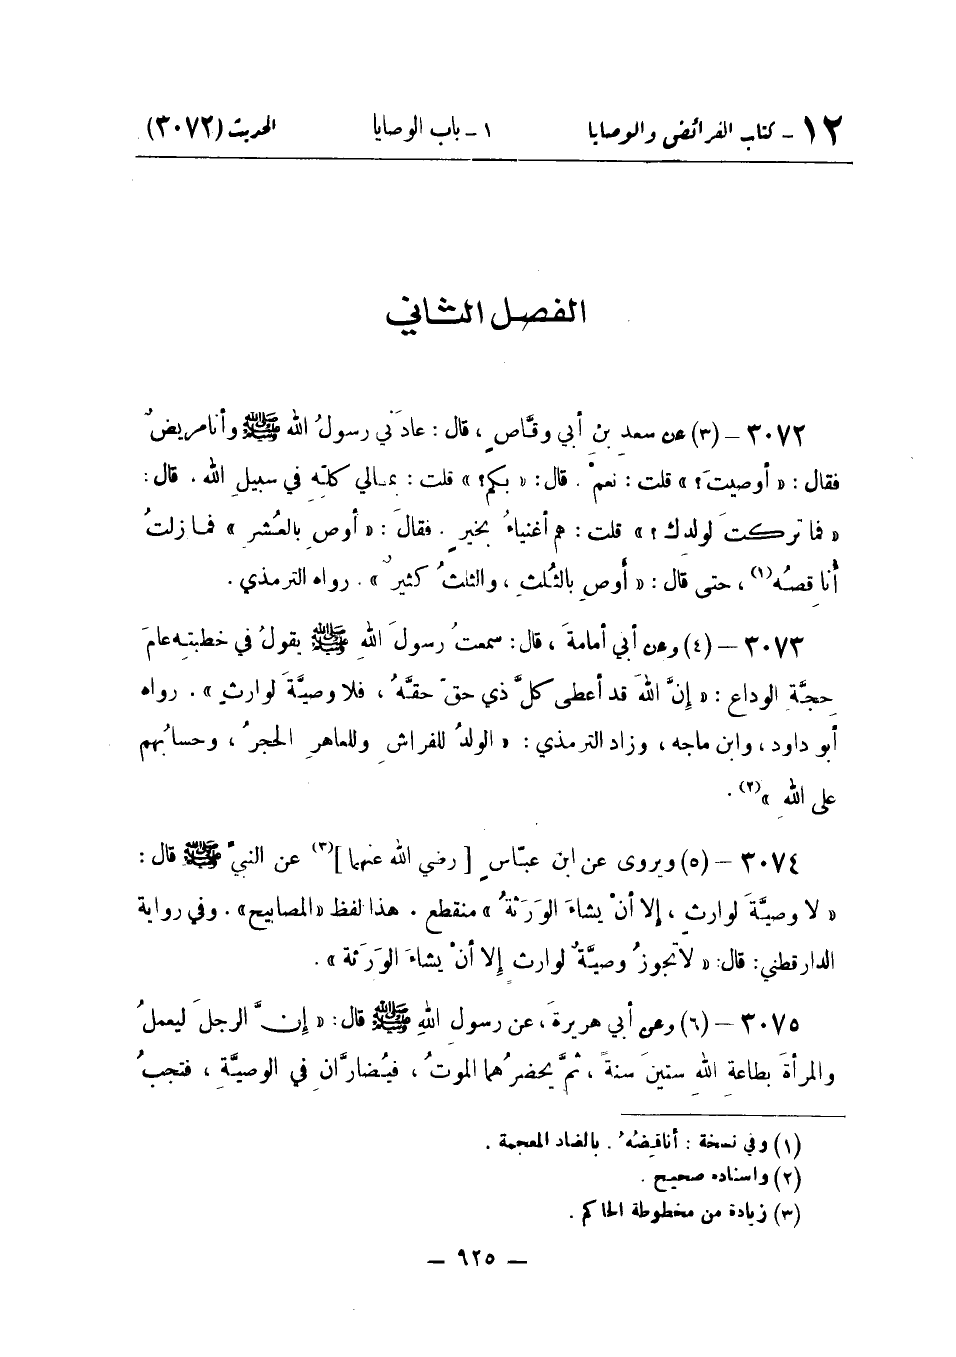 ١٢ – كتاب الفرائض والوصايا ١ – باب الوصايا الحديث (٣٠٧٢)
الفصل الثاني
٣٠٧٢ – (٣) عن سعدِ بنِ أبي وقَّاصٍ ، قال : عادَني رسولُ الله ﷺ وأنا مريضٌ
فقال : « أوصيتَ؟ » قلت : نعمْ . قال : « بكم؟ » قلت : بمالي كلِّه في سبيلِ الله . قال :
« فما تركتَ لولدك ؟ » قلت : هم أغنياءُ بخيرٍ . فقالَ : « أوصِ بالعُشرِ » فما زلتُ
أُناقِصُه(١) ، حتى قال : « أُوصِ بالثُلثِ ، والثلثُ كثيرٌ » . رواه الترمذي .
٣٠٧٣ – (٤) وعن أبي أمامةَ ، قال : سمعتُ رسولَ اللهِ ﷺ يقولُ في خطبتِه عامَ
حِجَّةِ الوداع : « إِنَّ اللهَ قد أعطى كلَّ ذي حقّ حقَّهُ ، فلا وصيَّةَ لوارثٍ » . رواه
أبو داود ، وابن ماجه ، وزاد الترمذي : « الولدُ للفراشِ وللعاهرِ الحجرُ ، وحسابُهم
على اللهِ »(٢) .
٣٠٧٤ – (٥) ويروى عن ابن عبّاسٍ [ رضي الله عنهما ](٣) عن النبيّ ﷺ قال :
« لا وصيَّةَ لوارثٍ ، إِلا أنْ يشاءَ الوَرَثةُ » منقطع . هذا لفظ «المصابيح» . وفي رواية
الدارقطني : قال : « لا تجوزُ وصيَّةٌ لوارثٍ إِلا أنْ يشاءَ الوَرَثة » .
٣٠٧٥ – (٦) وعن أبي هريرةَ ، عن رسولِ اللهِ ﷺ قال : « إِنَّ الرجلَ ليعملُ
والمرأةَ بطاعةِ اللهِ ستينَ سنةً ، ثمَّ يحضرُهما الموتُ ، فيُضارَّانِ في الوصيَّةِ ، فتجبُ
(١) وفي نسخة : أناقِضُهُ . بالضاد المعجمة .
(٢) واسناده صحيح .
(٣) زيادة من مخطوطة الحاكم .
– ٩٢٥ –